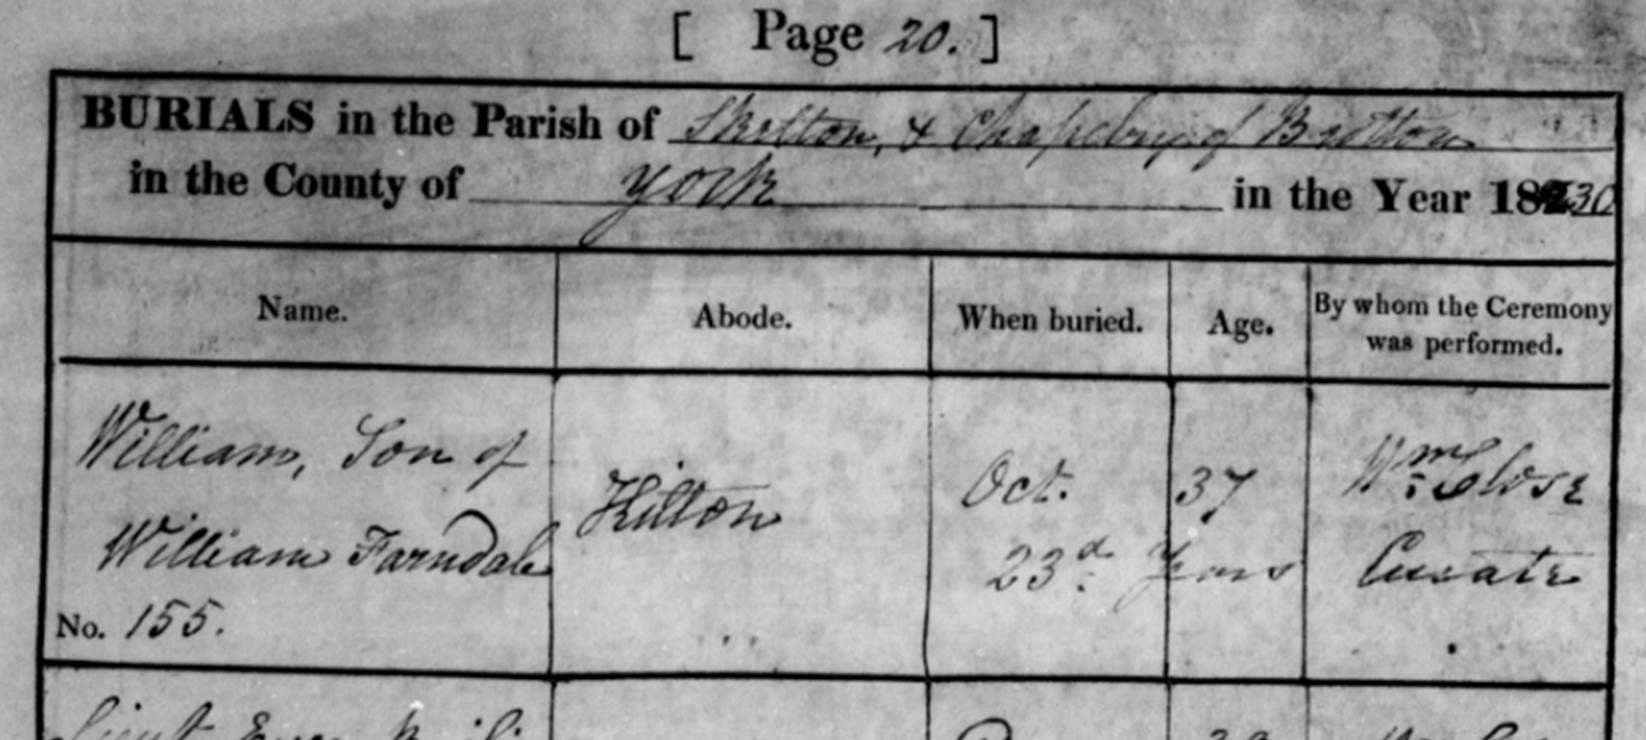 [ Page 20. ]
BURIALS in the Parish of Skelton, & Chapelry of Brotton
in the County of York in the Year 1830
Name.
Abode.
When buried.
Age.
By whom the Ceremony
was performed.
William, Son of
William Farndale
No. 155.
Kilton
Oct.
23d.
37
Years
Wm. Close
Curate
Lieut